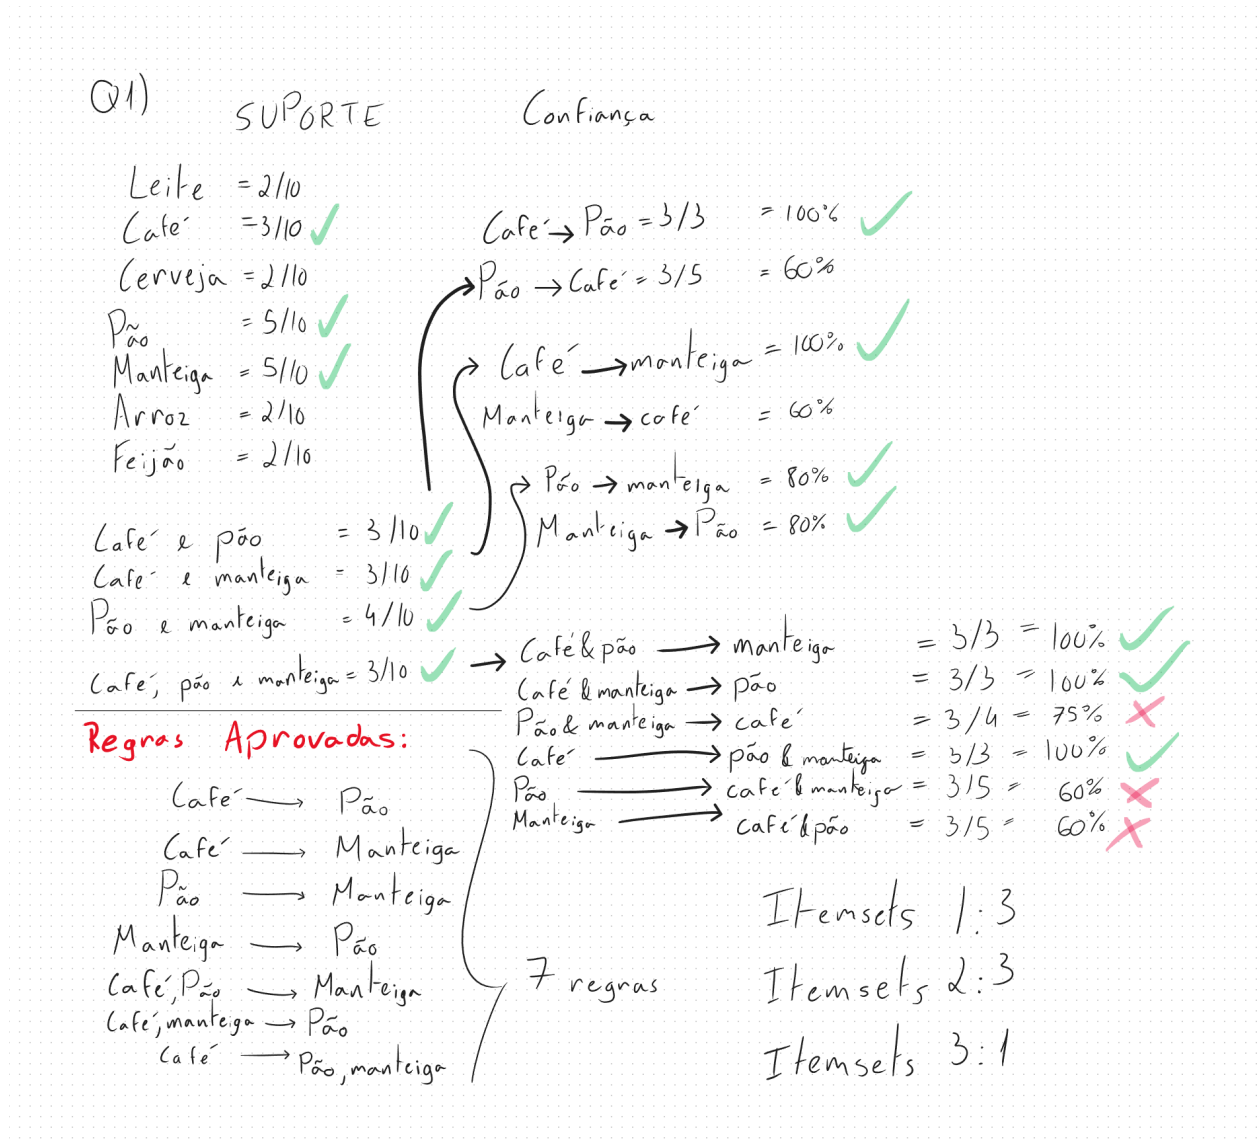 Q1)
SUPORTE
Confiança
Leite = 2/10
Café = 3/10
Cerveja = 2/10
Pão = 5/10
Manteiga = 5/10
Arroz = 2/10
Feijão = 2/10
Café e pão = 3/10
Café e manteiga = 3/10
Pão e manteiga = 4/10
Café, pão e manteiga = 3/10
Café → Pão = 3/3 = 100%
Pão → Café = 3/5 = 60%
Café → manteiga = 100%
Manteiga → café = 60%
Pão → manteiga = 80%
Manteiga → Pão = 80%
Café & pão → manteiga = 3/3 = 100%
Café & manteiga → pão = 3/3 = 100%
Pão & manteiga → café = 3/4 = 75%
Café → pão & manteiga = 3/3 = 100%
Pão → café & manteiga = 3/5 = 60%
Manteiga → café & pão = 3/5 = 60%
Regras Aprovadas:
Café → Pão
Café → Manteiga
Pão → Manteiga
Manteiga → Pão
Café, Pão → Manteiga
Café, manteiga → Pão
Café → Pão, manteiga
7 regras
Itemsets 1: 3
Itemsets 2: 3
Itemsets 3: 1